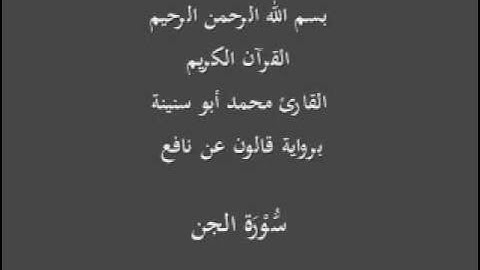 بسم الله الرحمن الرحيم
القرآن الكريم
القارئ محمد أبو سنينة
برواية قالون عن نافع
سُّوْرَة الجن